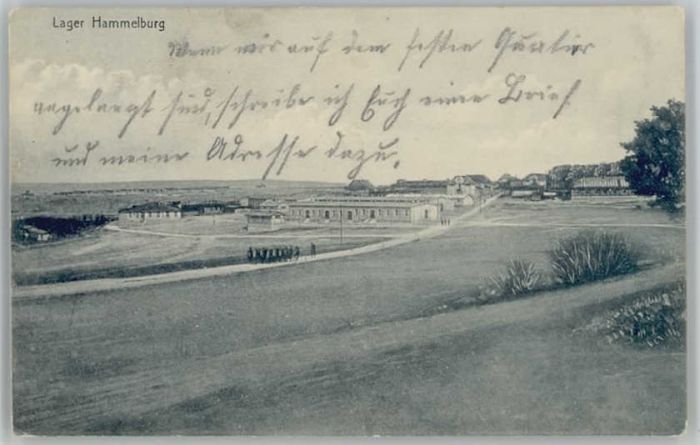 Lager Hammelburg
Wenn wir auf dem festen Quatier
angelangt sind, schreibe ich Euch einen Brief
und meine Adresse dazu.